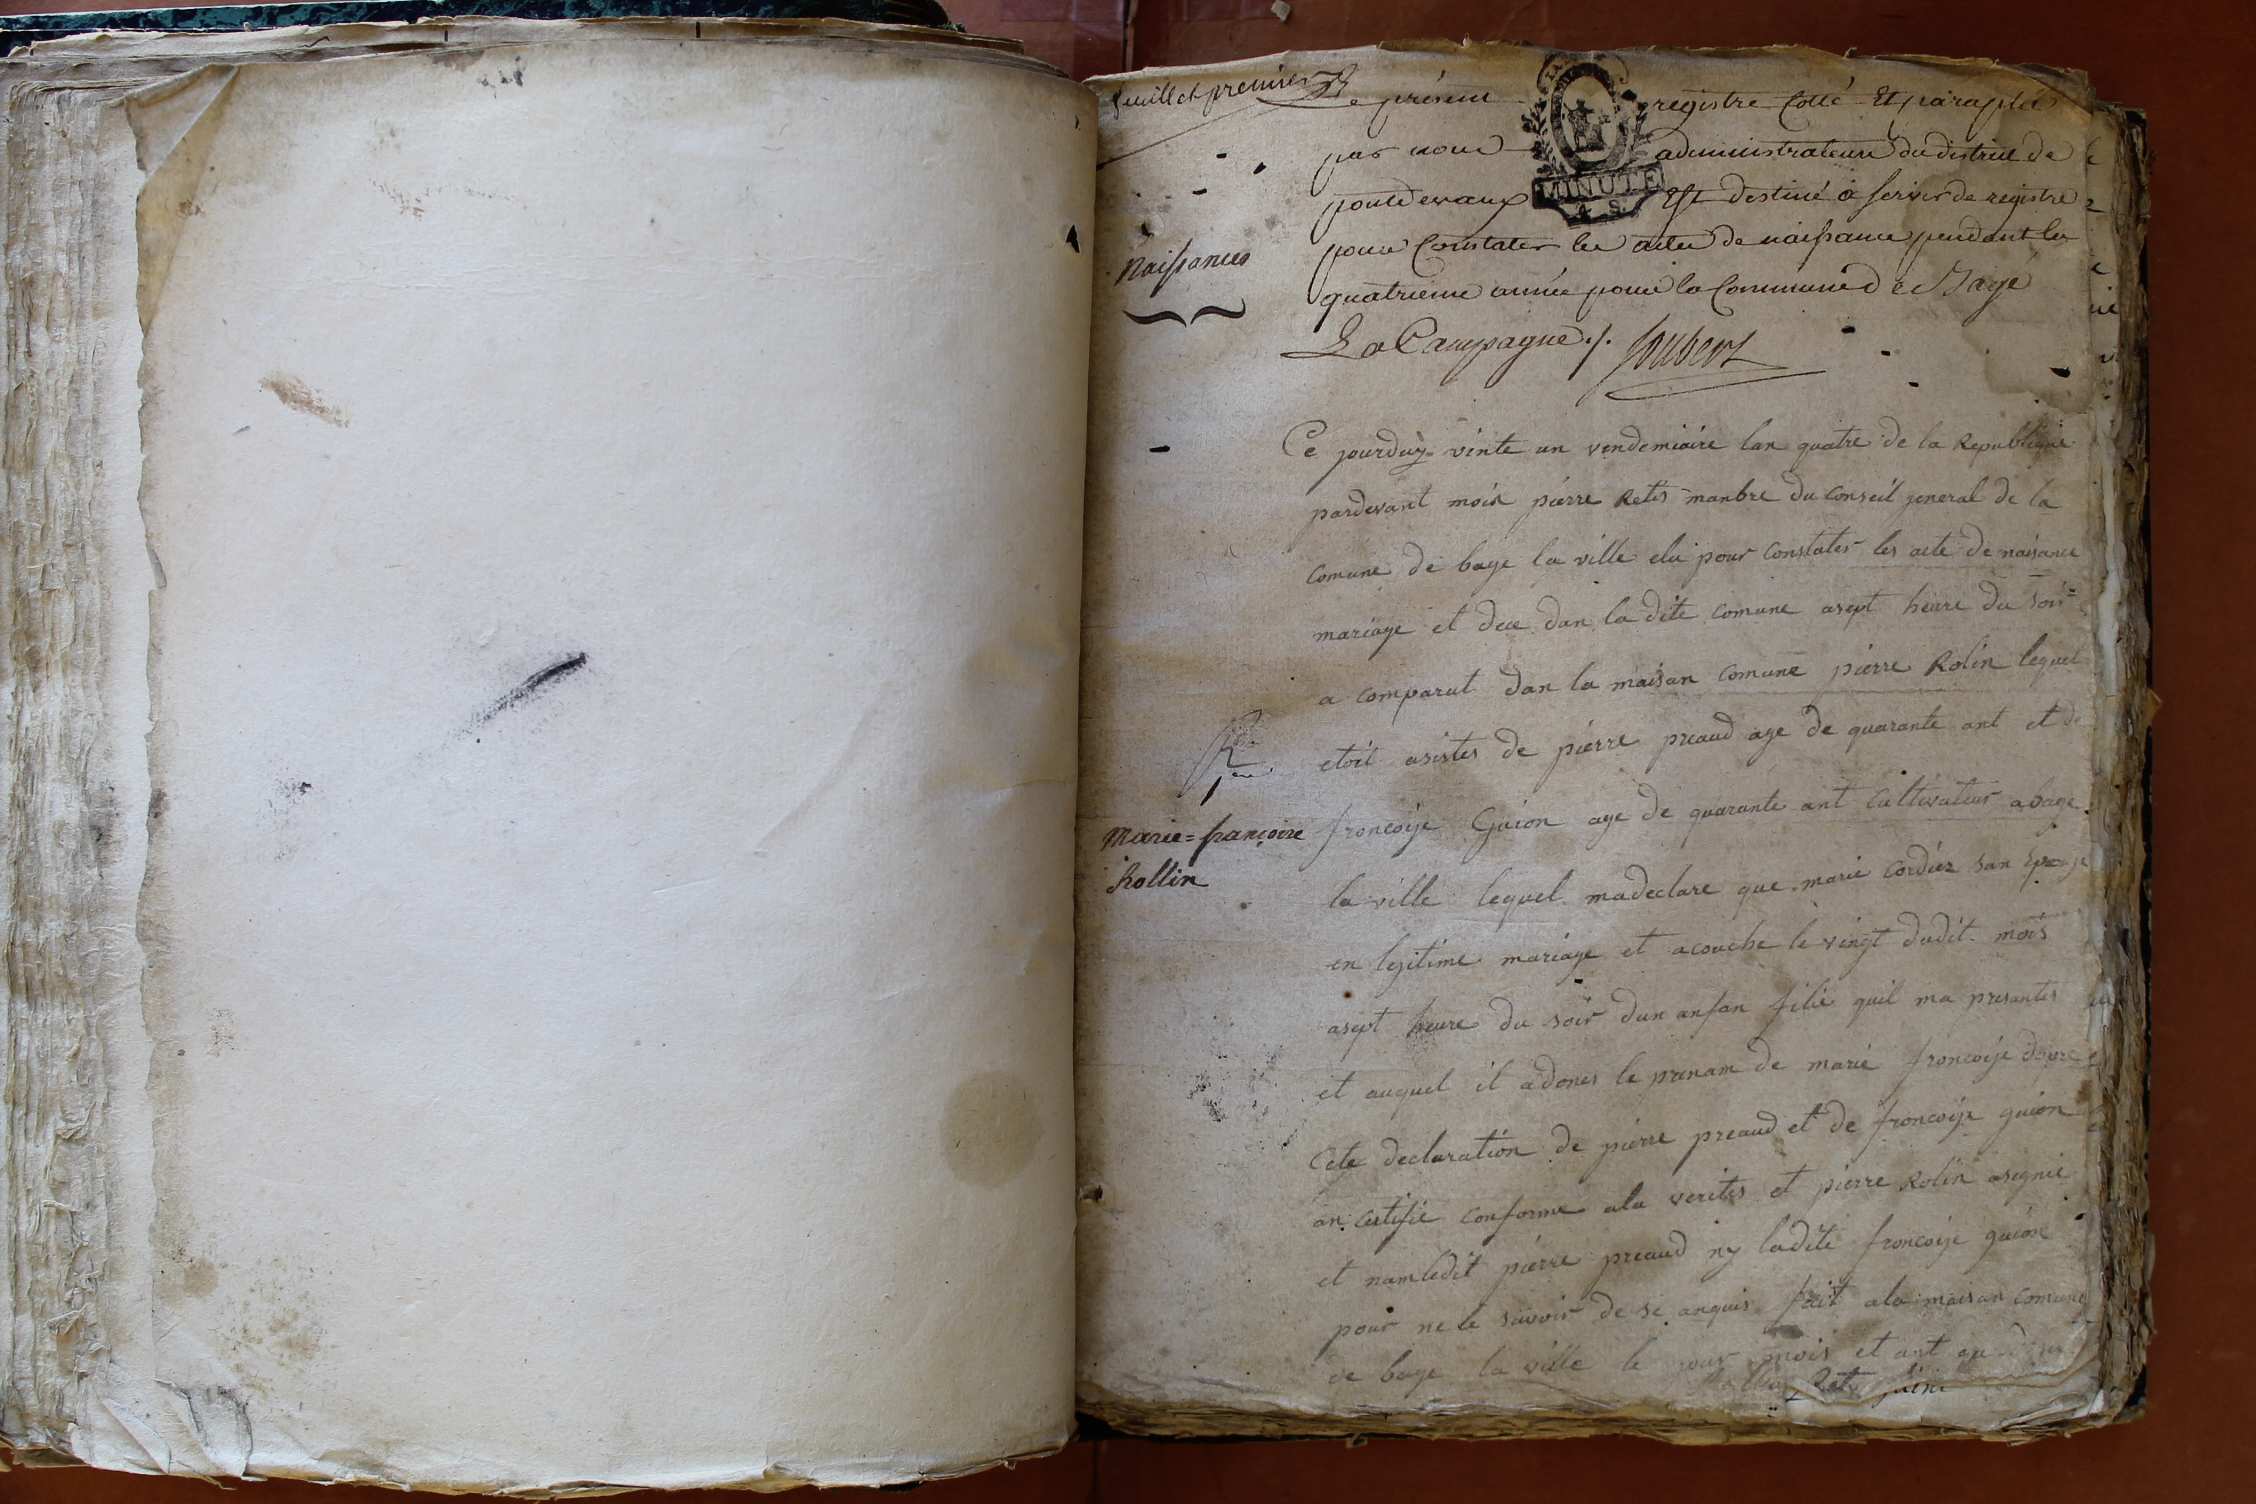 feuillet premier
Le présent registre Cotté Et paraphé
par nous administrateurs du district de
pontdevaux Est destiné a servir de registre
MINUTE
4. S.
Naissances
pour Constater les actes de naissance pendant la
quatrieme année pour la Commune de Bagé
La Campagne ./. Joubert
Ce jourduy vinte un vendemiaire lan quatre de la Republique
pardevant moir pierre Retis manbre du conseil jeneral de la
comune de bage la ville elu pour Constater les acte de naisance
mariage et dece dan la dite comune asept heure du soir
a comparut dan la maisan comune pierre Rolin lequel
etoit asistes de pierre preaud age de quarante ant et de
francoise Guion age de quarante ant cultivateur abage
Marie=françoise
Rollin
la ville lequel madeclare que marie cordier san Epouse
en legitime mariage et acouche le vingt dudit mois
asept heure du soir dun anfan filie quil ma presantes
et auquel il adones le prenam de marie francoise
Cete declaration de pierre preaud et de francoise guion
an certifie conforme ala verites et pierre Rolin asignie
et nam ledit pierre preaud ny ladite francoise guion
pour ne le savoir de se anquis fait ala maisan comune
de bage la ville le jour mois et ant